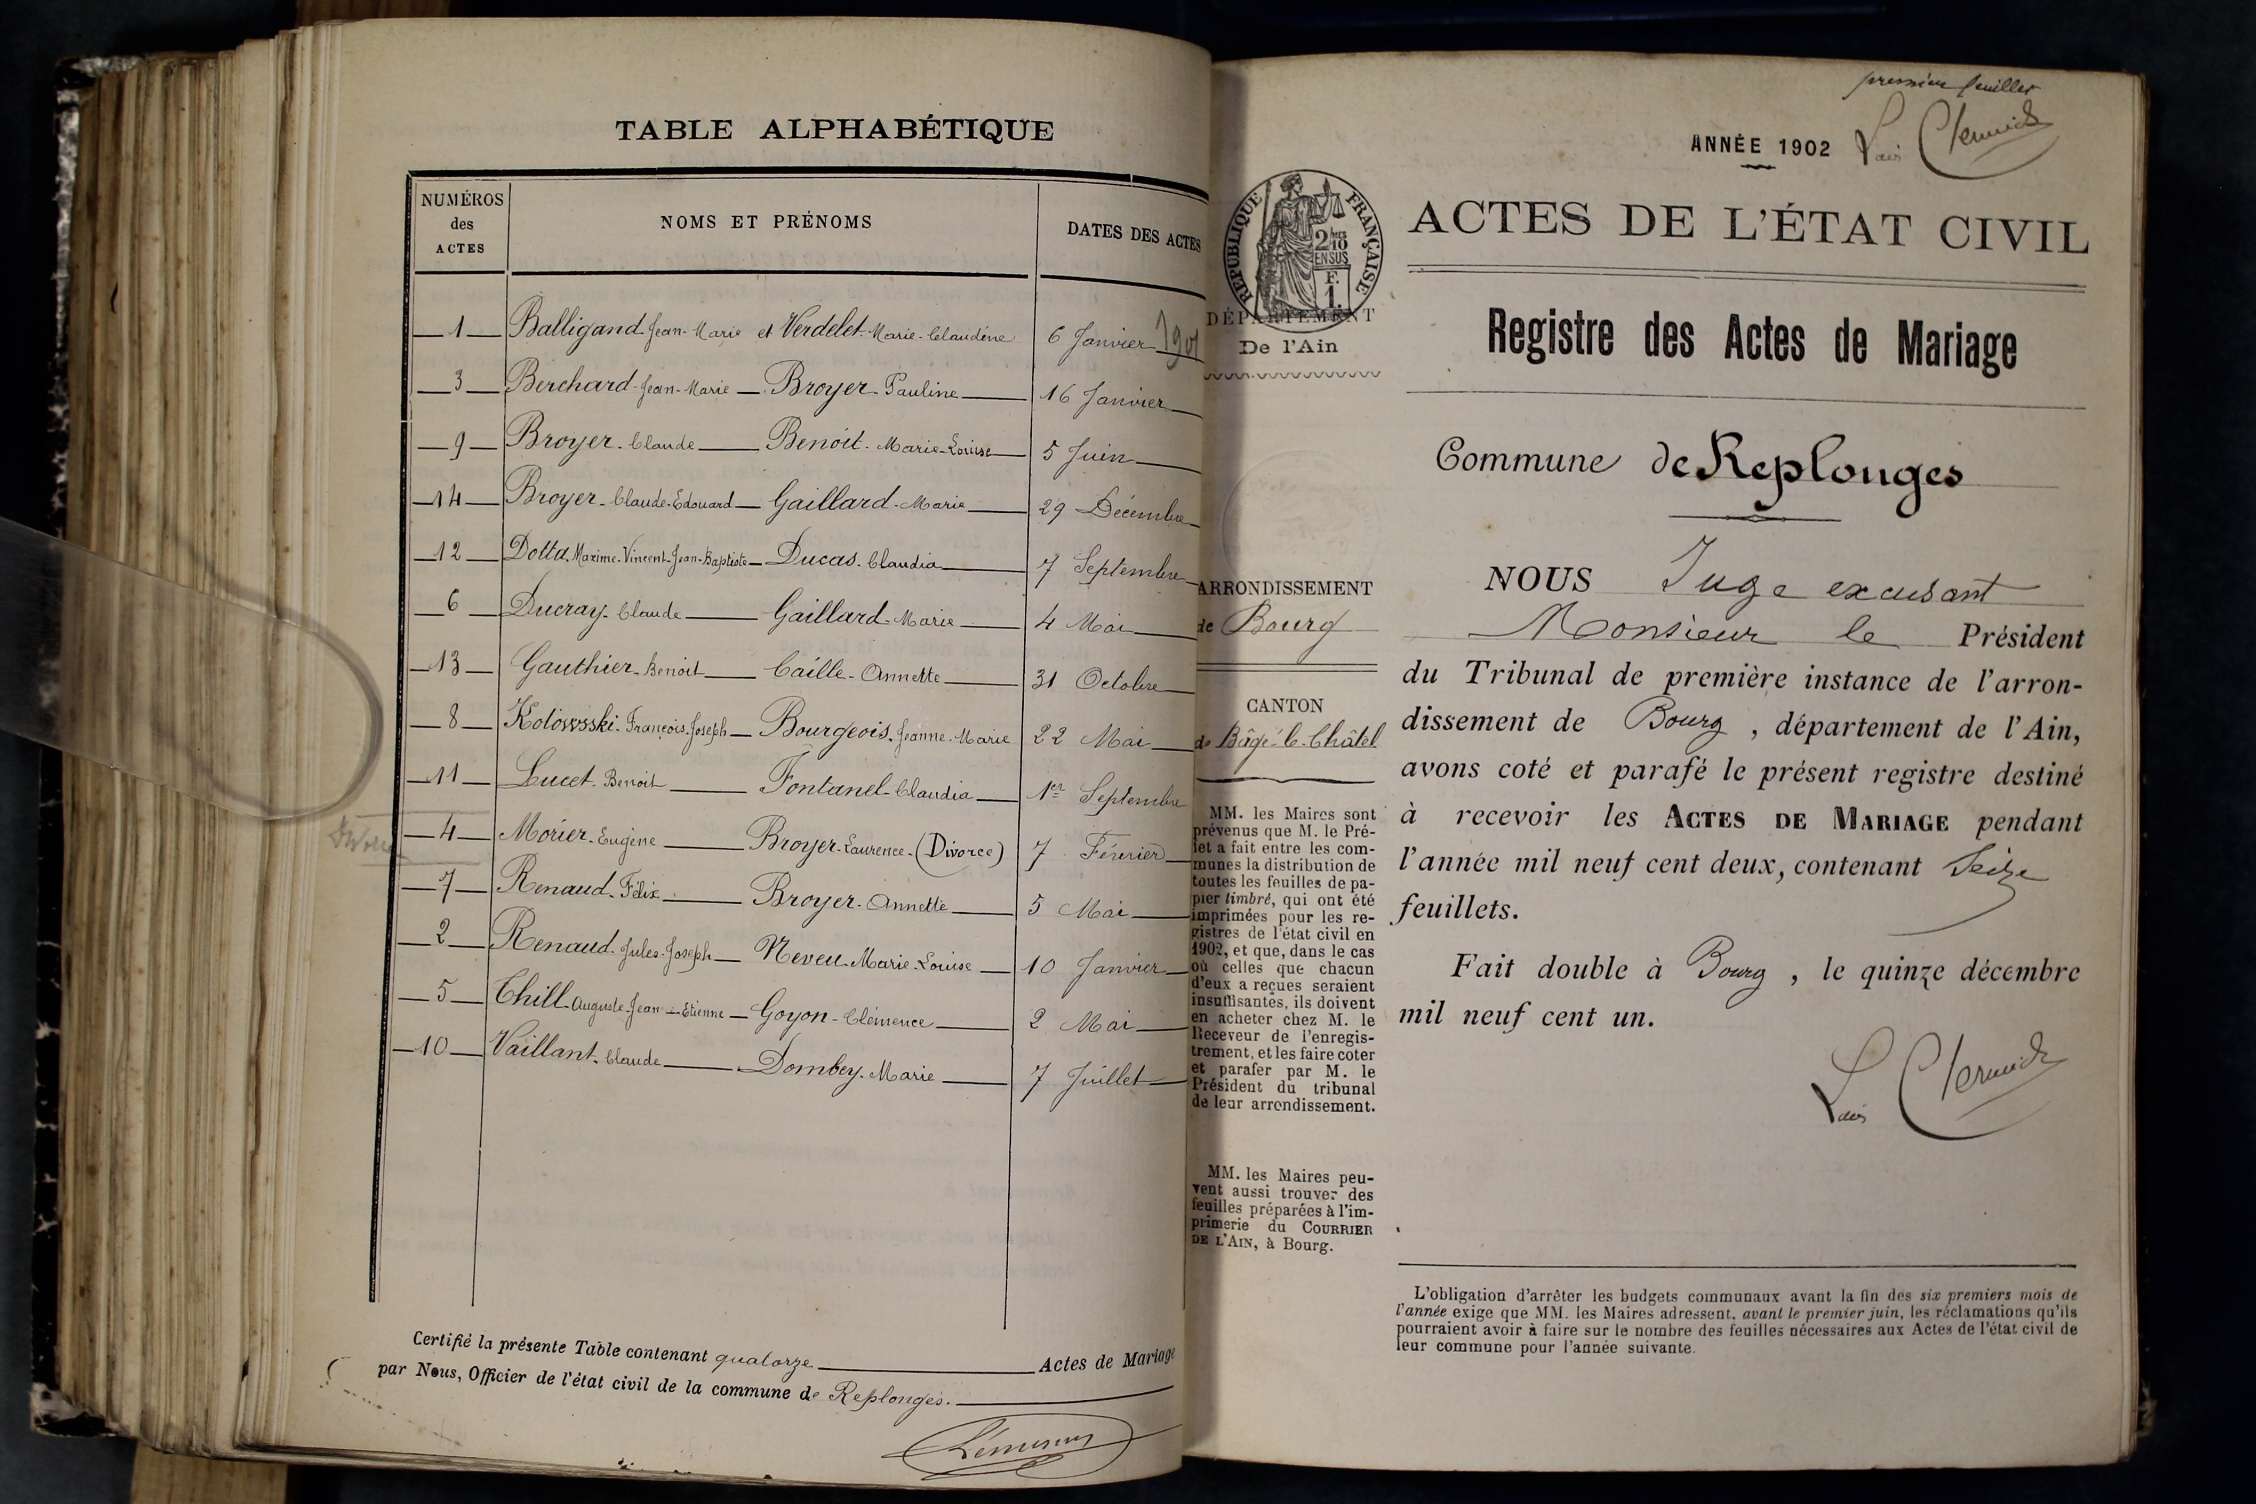 TABLE ALPHABÉTIQUE
NUMÉROS des ACTES
NOMS ET PRÉNOMS
DATES DES ACTES
1 Balligand Jean-Marie et Verdelet Marie-Claudine 6 Janvier 1901
3 Berchard Jean-Marie Broyer Pauline 16 Janvier
9 Broyer Claude Benoît Marie-Louise 5 Juin
14 Broyer Claude-Edouard Gaillard Marie 29 Décembre
12 Dotta Maxime-Vincent-Jean-Baptiste Ducas Claudia 7 Septembre
6 Ducray Claude Gaillard Marie 4 Mai
13 Gauthier Benoit Caille Annette 31 Octobre
8 Kotowsski François-Joseph Bourgeois Jeanne-Marie 22 Mai
11 Lucet Benoit Fontanel Claudia 1er Septembre
4 Morier Eugène Broyer Laurence (Divorce) 7 Février
7 Renaud Félix Broyer Annette 5 Mai
2 Renaud Jules-Joseph Neveu Marie-Louise 10 Janvier
5 Chill Auguste-Jean-Etienne Goyon Clémence 2 Mai
10 Vaillant Claude Dombey Marie 7 Juillet
Certifié la présente Table contenant quatorze Actes de Mariage
par Nous, Officier de l'état civil de la commune de Replonges.
premier feuillet
ANNÉE 1902
RÉPUBLIQUE FRANÇAISE
2/10 EN SUS
F. 1.
DÉPARTEMENT
De l'Ain
ACTES DE L'ÉTAT CIVIL
Registre des Actes de Mariage
Commune de Replonges
ARRONDISSEMENT
de Bourg
CANTON
de Bâgé-le-Châtel
MM. les Maires sont
prévenus que M. le Pré-
fet a fait entre les com-
munes la distribution de
toutes les feuilles de pa-
pier timbré, qui ont été
imprimées pour les re-
gistres de l'état civil en
1902, et que, dans le cas
où celles que chacun
d'eux a reçues seraient
insuffisantes, ils doivent
en acheter chez M. le
Receveur de l'enregis-
trement, et les faire coter
et parafer par M. le
Président du tribunal
de leur arrondissement.
MM. les Maires peu-
vent aussi trouver des
feuilles préparées à l'im-
primerie du COURRIER
DE L'AIN, à Bourg.
NOUS Juge excusant
Monsieur le Président
du Tribunal de première instance de l'arron-
dissement de Bourg, département de l'Ain,
avons coté et parafé le présent registre destiné
à recevoir les ACTES DE MARIAGE pendant
l'année mil neuf cent deux, contenant Seize
feuillets.
Fait double à Bourg, le quinze décembre
mil neuf cent un.
L'obligation d'arrêter les budgets communaux avant la fin des six premiers mois de
l'année exige que MM. les Maires adressent, avant le premier juin, les réclamations qu'ils
pourraient avoir à faire sur le nombre des feuilles nécessaires aux Actes de l'état civil de
leur commune pour l'année suivante.